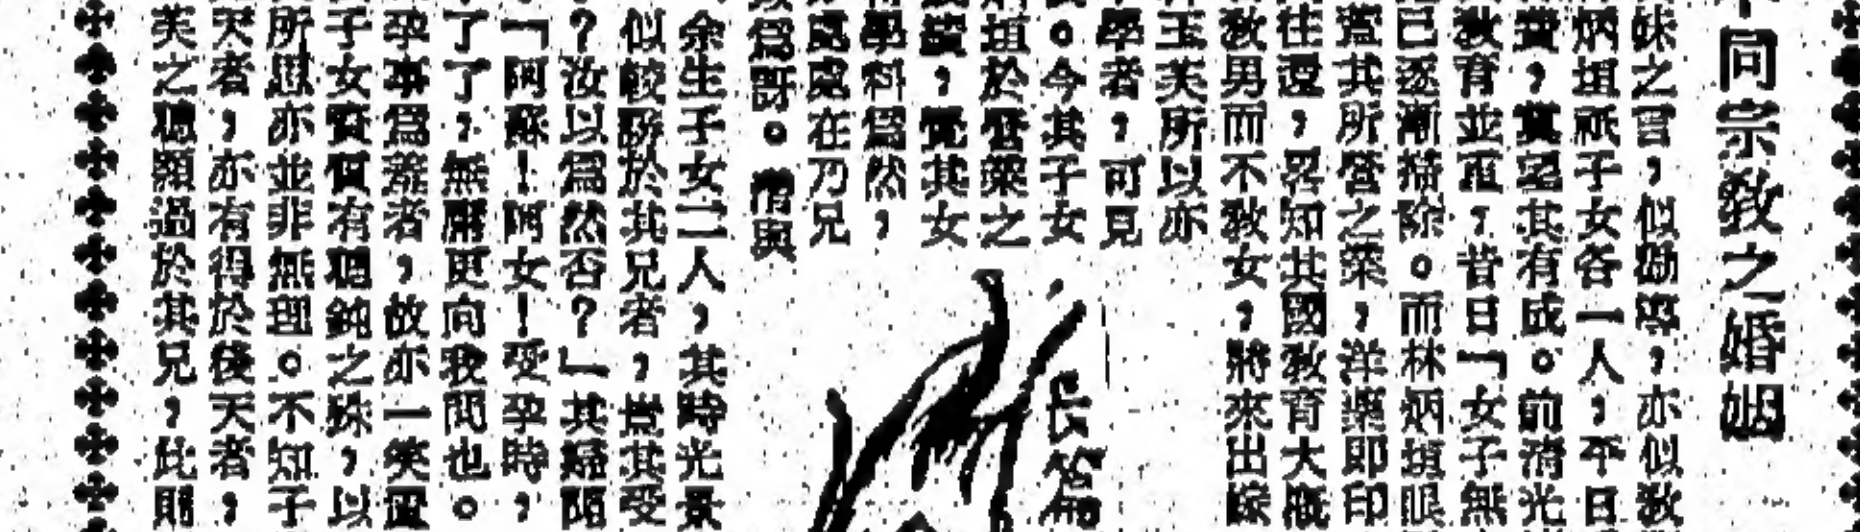 同宗教之婚姻
妹之言，似勸導，亦似教
炳垣祇子女各一人，平日
費，冀望其有成。前清光
教育並重，昔日「女子無
已逐漸掃除。而林炳垣眼
蓋其所營之業，洋藥即印
往還，畧知其國教育大概
教男而不教女，將來出嫁
玉芙所以亦
學者，可見
。今其子女
垣於營業之
讀，覺其女
學科為然，
處處在乃兄
為訝。惜與
余生子女二人，其時光景
似較勝於其兄者，豈其受
？汝以為然否？」其婦聞
「阿蘇！阿女！受孕時，
了了，無庸更向我問也。
孕事為羞者，故亦一笑置
子女實質有聰鈍之殊，以
所思亦並非無理。不知子
天者，亦有得於後天者，
芙之聰頴過於其兄，此則